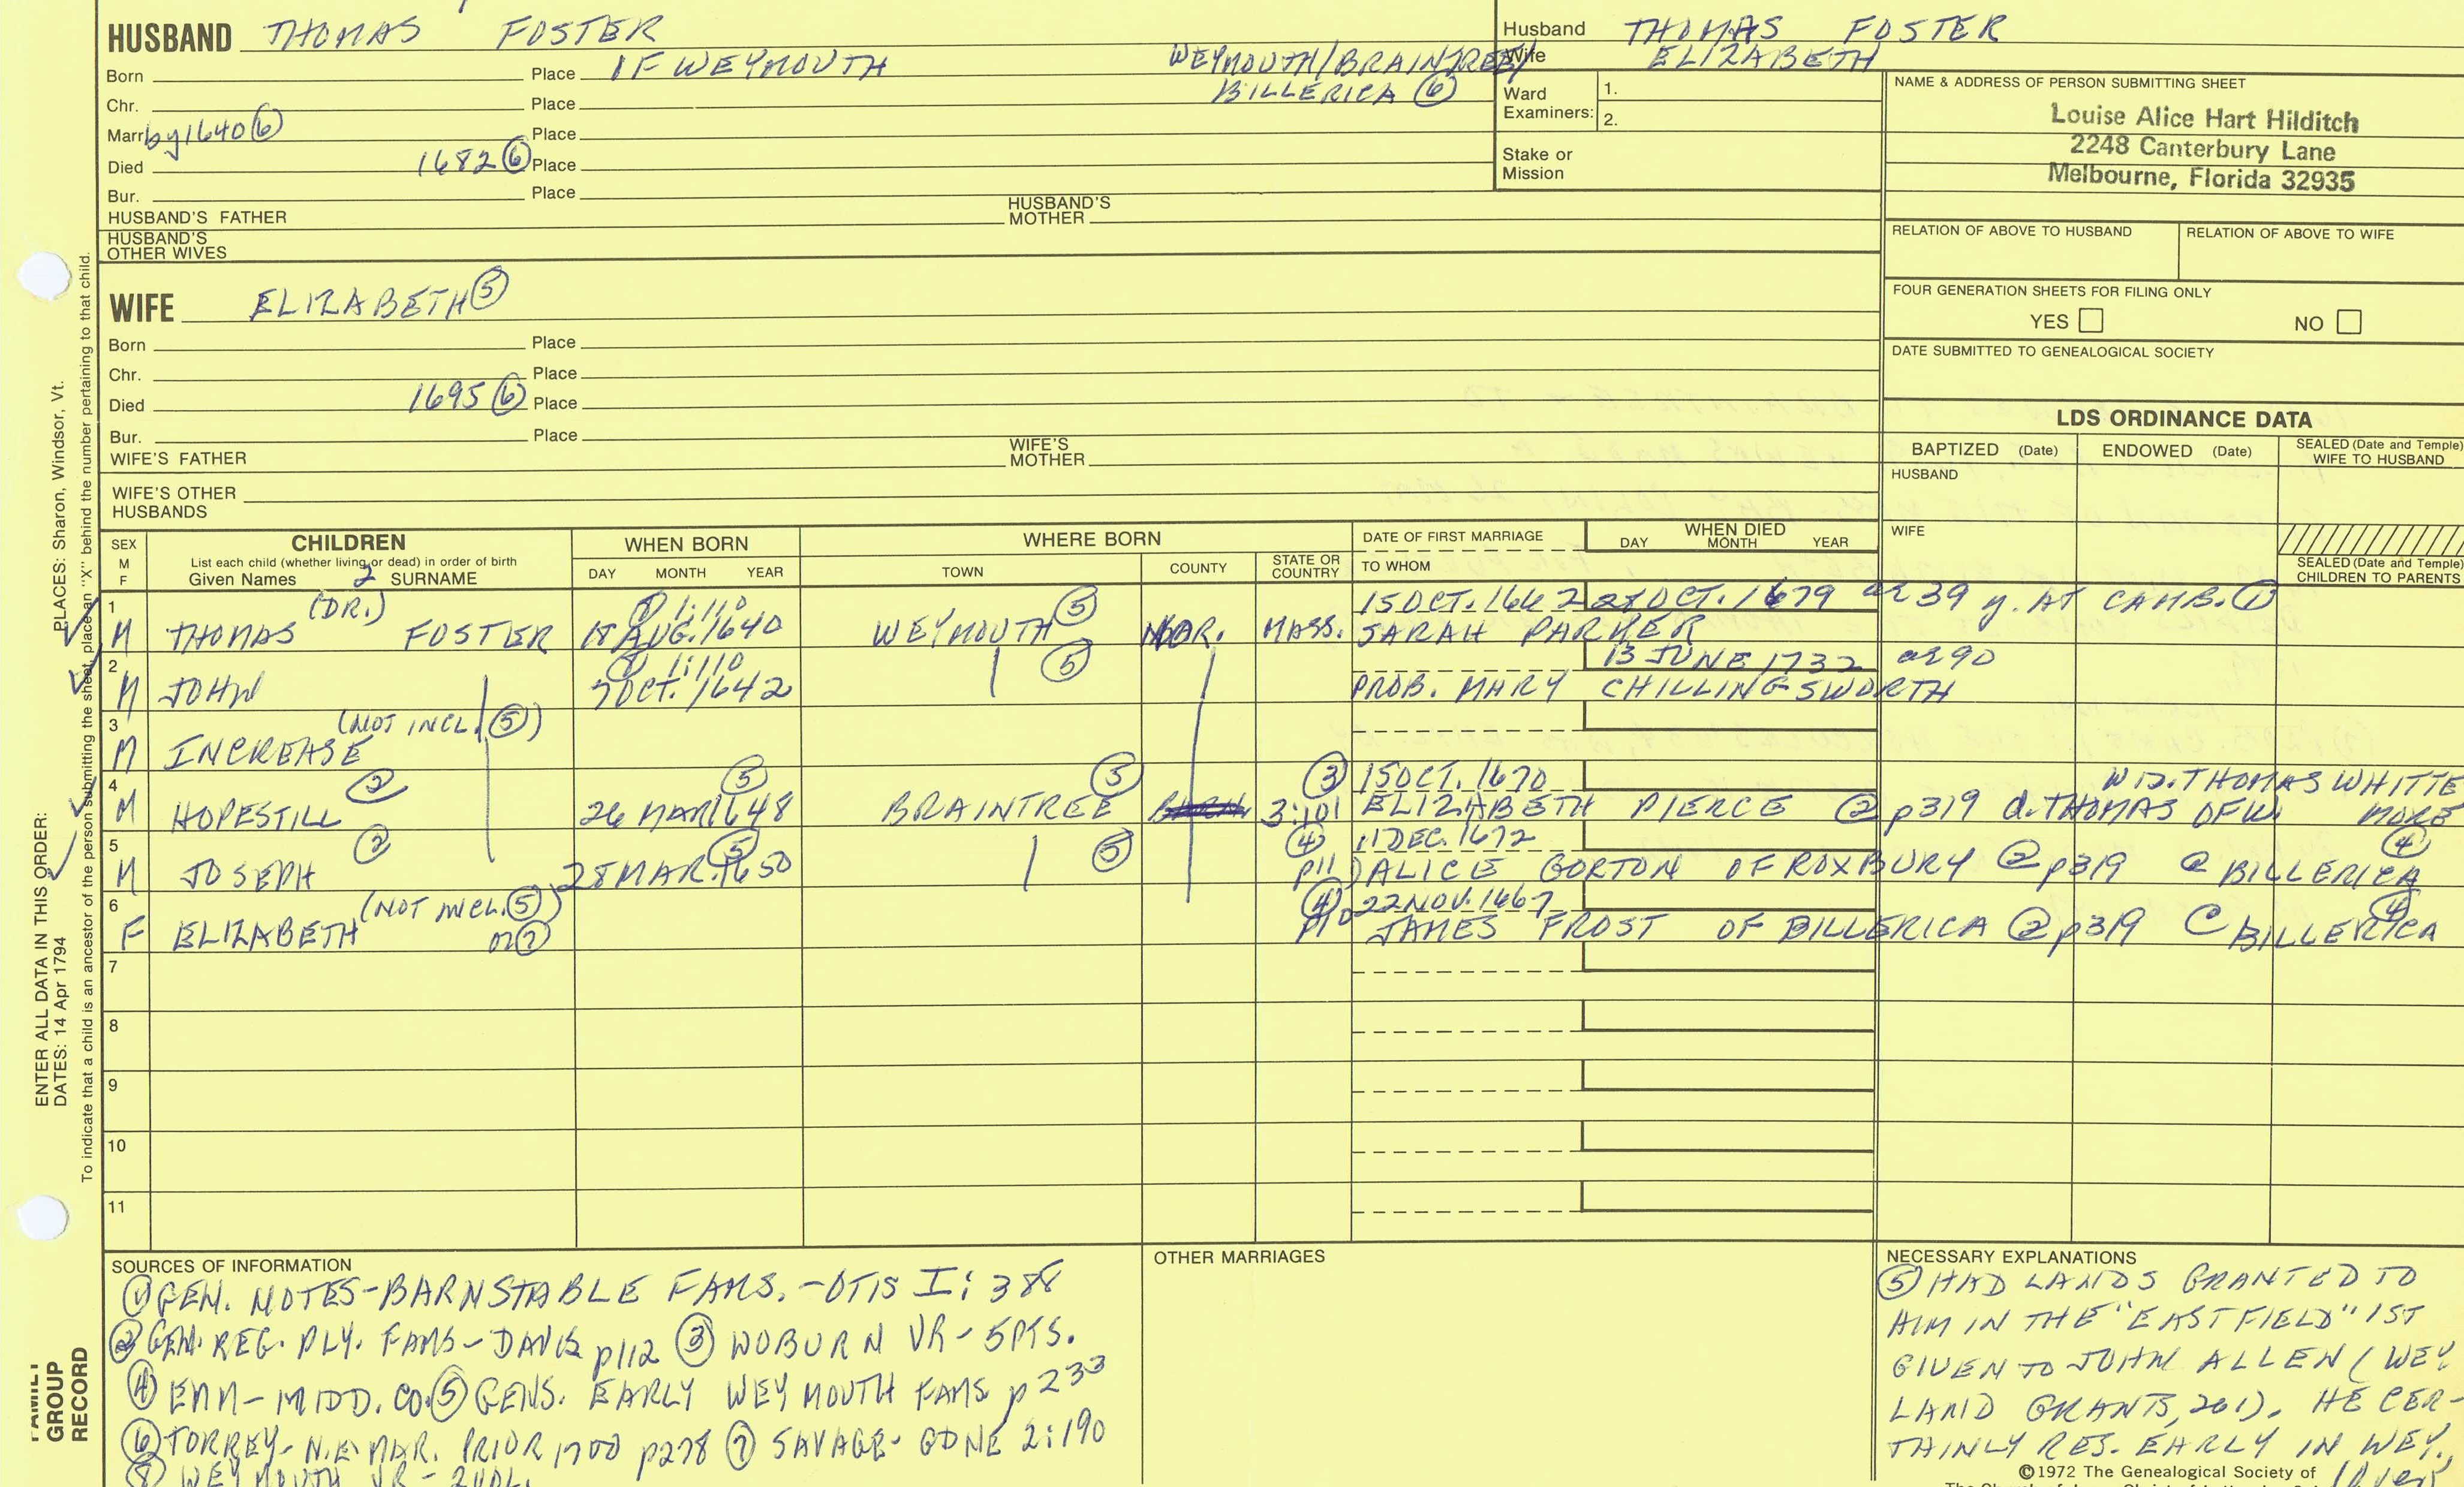 HUSBAND THOMAS FOSTER
Born Place 1F WEYMOUTH WEYMOUTH/BRAINTREE/
Chr. Place BILLERICA ⑥
Marr by 1640 ⑥ Place
Died 1682 ⑥ Place
Bur. Place
HUSBAND'S FATHER HUSBAND'S MOTHER
HUSBAND'S OTHER WIVES
Husband THOMAS FOSTER
Wife ELIZABETH
Ward Examiners: 1.
2.
Stake or Mission
NAME & ADDRESS OF PERSON SUBMITTING SHEET
Louise Alice Hart Hilditch
2248 Canterbury Lane
Melbourne, Florida 32935
RELATION OF ABOVE TO HUSBAND RELATION OF ABOVE TO WIFE
FOUR GENERATION SHEETS FOR FILING ONLY
YES NO
DATE SUBMITTED TO GENEALOGICAL SOCIETY
WIFE ELIZABETH ⑤
Born Place
Chr. Place
Died 1695 ⑥ Place
Bur. Place
WIFE'S FATHER WIFE'S MOTHER
WIFE'S OTHER HUSBANDS
LDS ORDINANCE DATA
BAPTIZED (Date) ENDOWED (Date) SEALED (Date and Temple) WIFE TO HUSBAND
HUSBAND
WIFE
SEALED (Date and Temple) CHILDREN TO PARENTS
SEX M F
CHILDREN
List each child (whether living or dead) in order of birth
Given Names 2 SURNAME
WHEN BORN
DAY MONTH YEAR
WHERE BORN
TOWN COUNTY STATE OR COUNTRY
DATE OF FIRST MARRIAGE
TO WHOM
WHEN DIED
DAY MONTH YEAR
1 (DR.) ⑧ 1:110 ⑤ 15 OCT. 1662 28 OCT. 1679 ae 39 y. AT CAMB. ①
M THOMAS FOSTER 18 AUG. 1640 WEYMOUTH NOR. MASS. SARAH PARKER
2 ⑧ 1:110 ⑤ 13 JUNE 1732 ae 90
M JOHN 7 OCT. 1642 PROB. MARY CHILLINGSWORTH
3 (NOT INCL. ⑤)
M INCREASE
4 ② ⑤ ⑤ ③ 15 OCT. 1670 WID. THOMAS WHITTE
M HOPESTILL 26 MAR 1648 BRAINTREE 3:101 ELIZABETH PIERCE ② p319 d. THOMAS OF W. MORE
5 ② ⑤ ⑤ ④ 11 DEC. 1672 ④
M JOSEPH 28 MAR. 1650 p11 ALICE GORTON OF ROXBURY ② p319 @ BILLERICA
6 (NOT INCL. ⑤) ④ 22 NOV. 1667 ④
F ELIZABETH or ⑦ p10 JAMES FROST OF BILLERICA ② p319 @ BILLERICA
7
8
9
10
11
SOURCES OF INFORMATION
① GEN. NOTES-BARNSTABLE FAMS. - OTIS I: 388
② GEN. REG. PLY. FAMS - DAVIS p112 ③ WOBURN VR - 5PTS.
④ EMM - MIDD. CO. ⑤ GENS. EARLY WEYMOUTH FAMS p233
⑥ TORREY - N.E. MAR. PRIOR 1700 p278 ⑦ SAVAGE - GDNE 2:190
⑧ WEYMOUTH VR - 2VOL.
OTHER MARRIAGES
NECESSARY EXPLANATIONS
⑤ HAD LANDS GRANTED TO
HIM IN THE "EASTFIELD" 1ST
GIVEN TO JOHN ALLEN (WEY
LAND GRANTS, 261). HE CER-
TAINLY RES. EARLY IN WEY.,
©1972 The Genealogical Society of
(Over
ENTER ALL DATA IN THIS ORDER:
DATES: 14 Apr 1794 PLACES: Sharon, Windsor, Vt.
To indicate that a child is an ancestor of the person submitting the sheet, place an "X" behind the number pertaining to that child.
FAMILY GROUP RECORD